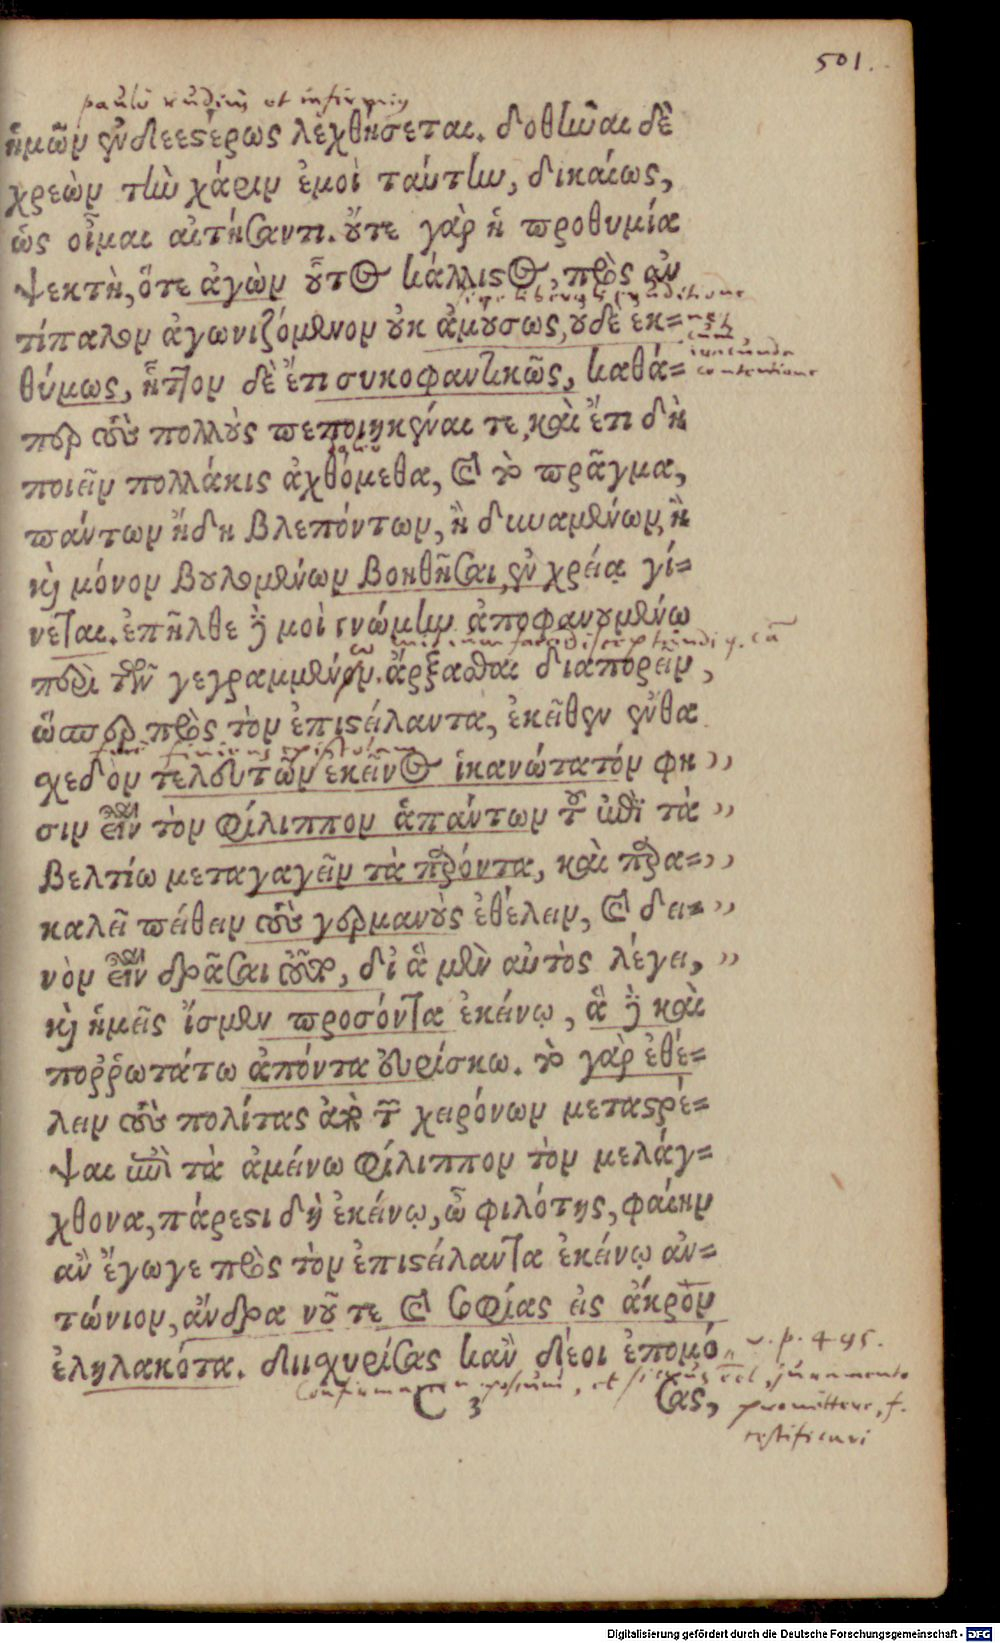 501.
paulo rudius et infirmis
ἡμῶν ἐνδεεστέρως λεχθήσεται. δοθῆναι δὲ
χρεὼν τὴν χάριν ἐμοὶ ταύτην, δικαίως,
ὡς οἶμαι αἰτήσαντι. οὔτε γὰρ ἡ προθυμία
ψεκτὴ, ὅτε ἀγὼν οὗτος κάλλιστος, πρὸς ἀν
τίπαλον ἀγωνιζόμενον οὐκ ἀμούσως, οὐδὲ ἐκ=
θύμως, ἧττον δὲ ἔτι συκοφαντικῶς, καθά=
περ τοὺς πολλοὺς πεποιηκέναι τε, καὶ ἔτι δὴ
ποιεῖν πολλάκις ἀχθόμεθα, καὶ τὸ πρᾶγμα,
πάντων ἤδη βλεπόντων, ἢ δυναμένων, ἢ
καὶ μόνον βουλομένων βοηθῆσαι, ἐν χρείᾳ γί=
νεται. ἐπῆλθε δέ μοὶ γνώμην ἀποφανουμένῳ
περὶ τῶν γεγραμμένων. ἄρξασθαι διαπορεῖν,
ὥσπερ πρὸς τὸν ἐπιστείλαντα, ἐκεῖθεν ἔνθα
fere finiens epistolam
σχεδὸν τελευτῶν ἐκεῖνος ἱκανώτατόν φη ,,
σιν εἶναι τὸν Φίλιππον ἁπάντων τοῦ ἐπὶ τὰ ,,
βελτίω μεταγαγεῖν τὰ παρόντα, καὶ παρα= ,,
καλεῖ πείθειν τοὺς γερμανοὺς ἐθέλειν, καὶ δει= ,,
νὸν εἶναι δρᾶσαι τοῦτο, δι' ἃ μὲν αὐτὸς λέγει, ,,
καὶ ἡμεῖς ἴσμεν προσόντα ἐκείνῳ, ἃ δὲ καὶ
ποῤῥωτάτω ἀπόντα εὑρίσκω. τὸ γὰρ ἐθέ=
λειν τοὺς πολίτας ἀπὸ τῶν χειρόνων μεταστρέ=
ψαι ἐπὶ τὰ ἀμείνω Φίλιππον τὸν μελάγ=
χθονα, πάρεστι δὴ ἐκείνῳ, ὦ φιλότης, φαίην
ἂν ἔγωγε πρὸς τὸν ἐπιστείλαντα ἐκείνῳ ἀν=
τώνιον, ἄνδρα νοῦ τε καὶ σοφίας εἰς ἄκρον
ἐληλακότα. διισχυρίσας κἂν δέοι ἐπομό
v. p. 495.
C 3
σας,
promittere, f.
testificari
Digitalisierung gefördert durch die Deutsche Forschungsgemeinschaft - DFG